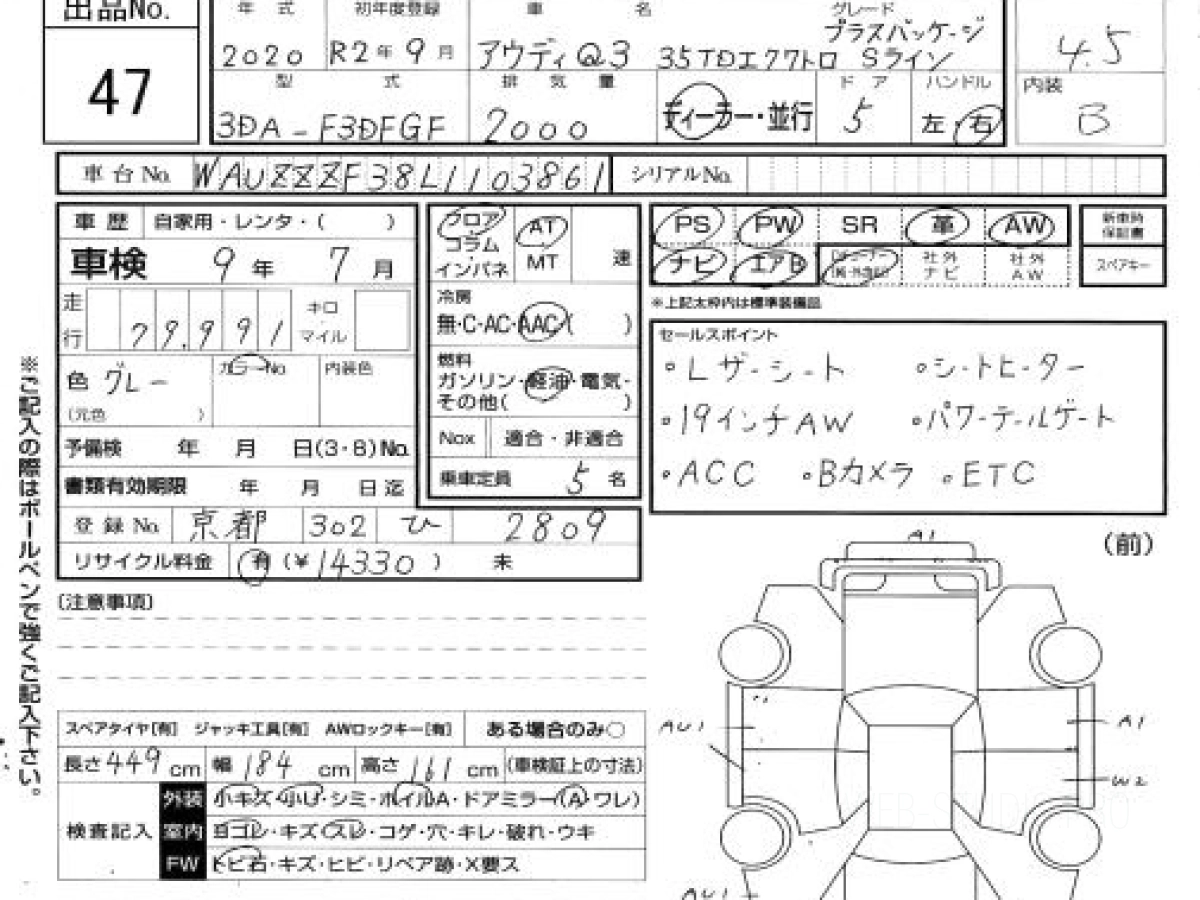 出品No.
47
年 式 初年度登録 車 名 グレード
2020 R2年9月 アウディQ3 35TDIエクアトロ プラスパッケージ Sライン 4.5
型 式 排 気 量 ドア ハンドル 内装
3DA-F3DFGF 2000 ディーラー・並行 5 左 右 B
車台No. WAUZZZF38L1103861 シリアルNo.
車 歴 自家用・レンタ・( )
車検 9年 7月
走行 79,991 キロ マイル
色 グレー カラーNo 内装色
(元色 )
予備検 年 月 日(3・8)No.
書類有効期限 年 月 日迄
登録No. 京都 302 ひ 2809
リサイクル料金 有 (¥14330) 未
フロア コラム インパネ AT MT 速
冷房
無・C・AC・AAC( )
燃料
ガソリン・軽油・電気・
その他( )
Nox 適合・非適合
乗車定員 5 名
PS PW SR 革 AW 新車時保証書
ナビ エアB 社外ナビ 社外AW スペアキー
※上記太枠内は標準装備品
セールスポイント
・レザーシート ・シートヒーター
・19インチAW ・パワーテールゲート
・ACC ・Bカメラ ・ETC
※ご記入の際はボールペンで強くご記入下さい。
〔注意事項〕
スペアタイヤ[有] ジャッキ工具[有] AWロックキー[有] ある場合のみ○
長さ449cm 幅184cm 高さ161cm (車検証上の寸法)
検査記入
外装 小キズ・小U・シミ・ホイルA・ドアミラー(A・ワレ)
室内 ヨゴレ・キズ・スレ・コゲ・穴・キレ・破れ・ウキ
FW トビ石・キズ・ヒビ・リペア跡・X要ス
(前)
A1
AU1 A1
W2